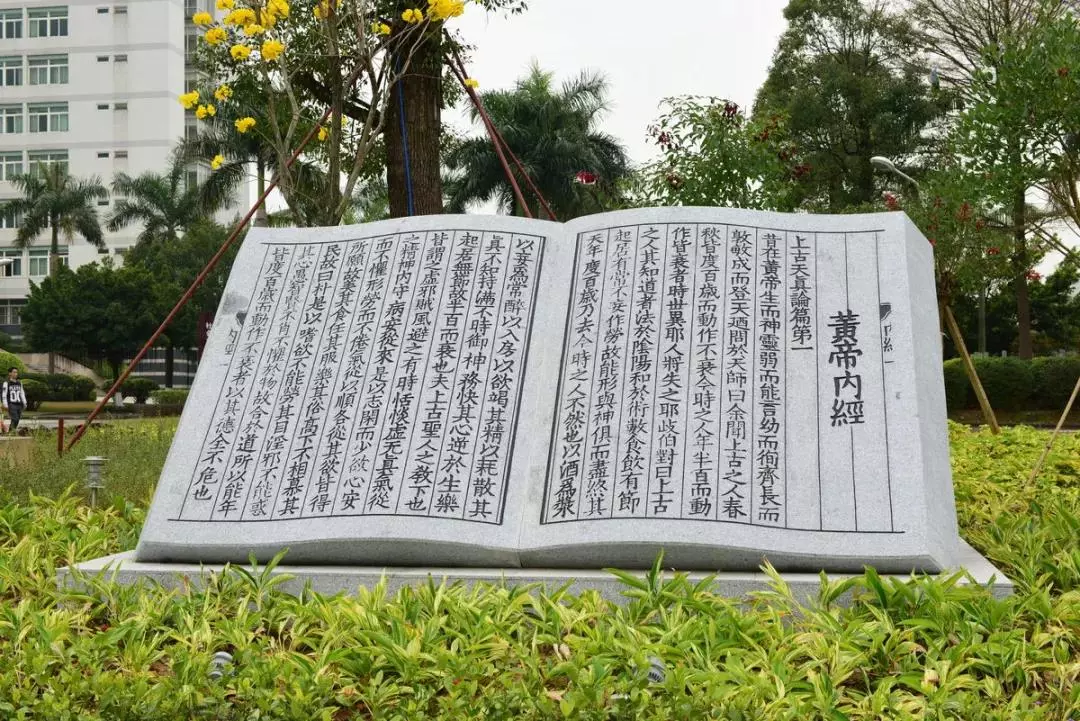 内經
黃帝内經
上古天真論篇第一
昔在黃帝生而神靈弱而能言幼而徇齊長而
敦敏成而登天迺問於天師曰余聞上古之人春
秋皆度百歲而動作不衰今時之人年半百而動
作皆衰者時世異耶人將失之耶歧伯對曰上古
之人其知道者法於陰陽和於術數食飲有節
起居有常不妄作勞故能形與神俱而盡終其
天年度百歲乃去今時之人不然也以酒爲漿
以妄爲常醉以入房以欲竭其精以耗散其
真不知持滿不時御神務快其心逆於生樂
起居無節故半百而衰也夫上古聖人之教下也
皆謂之虛邪賊風避之有時恬惔虛无真氣從
之精神内守病安從來是以志閑而少欲心安
而不懼形勞而不倦氣從以順各從其欲皆得
所願故美其食任其服樂其俗高下不相慕其
民故曰朴是以嗜欲不能勞其目淫邪不能惑
其心愚智賢不肖不懼於物故合於道所以能年
皆度百歲而動作不衰者以其德全不危也